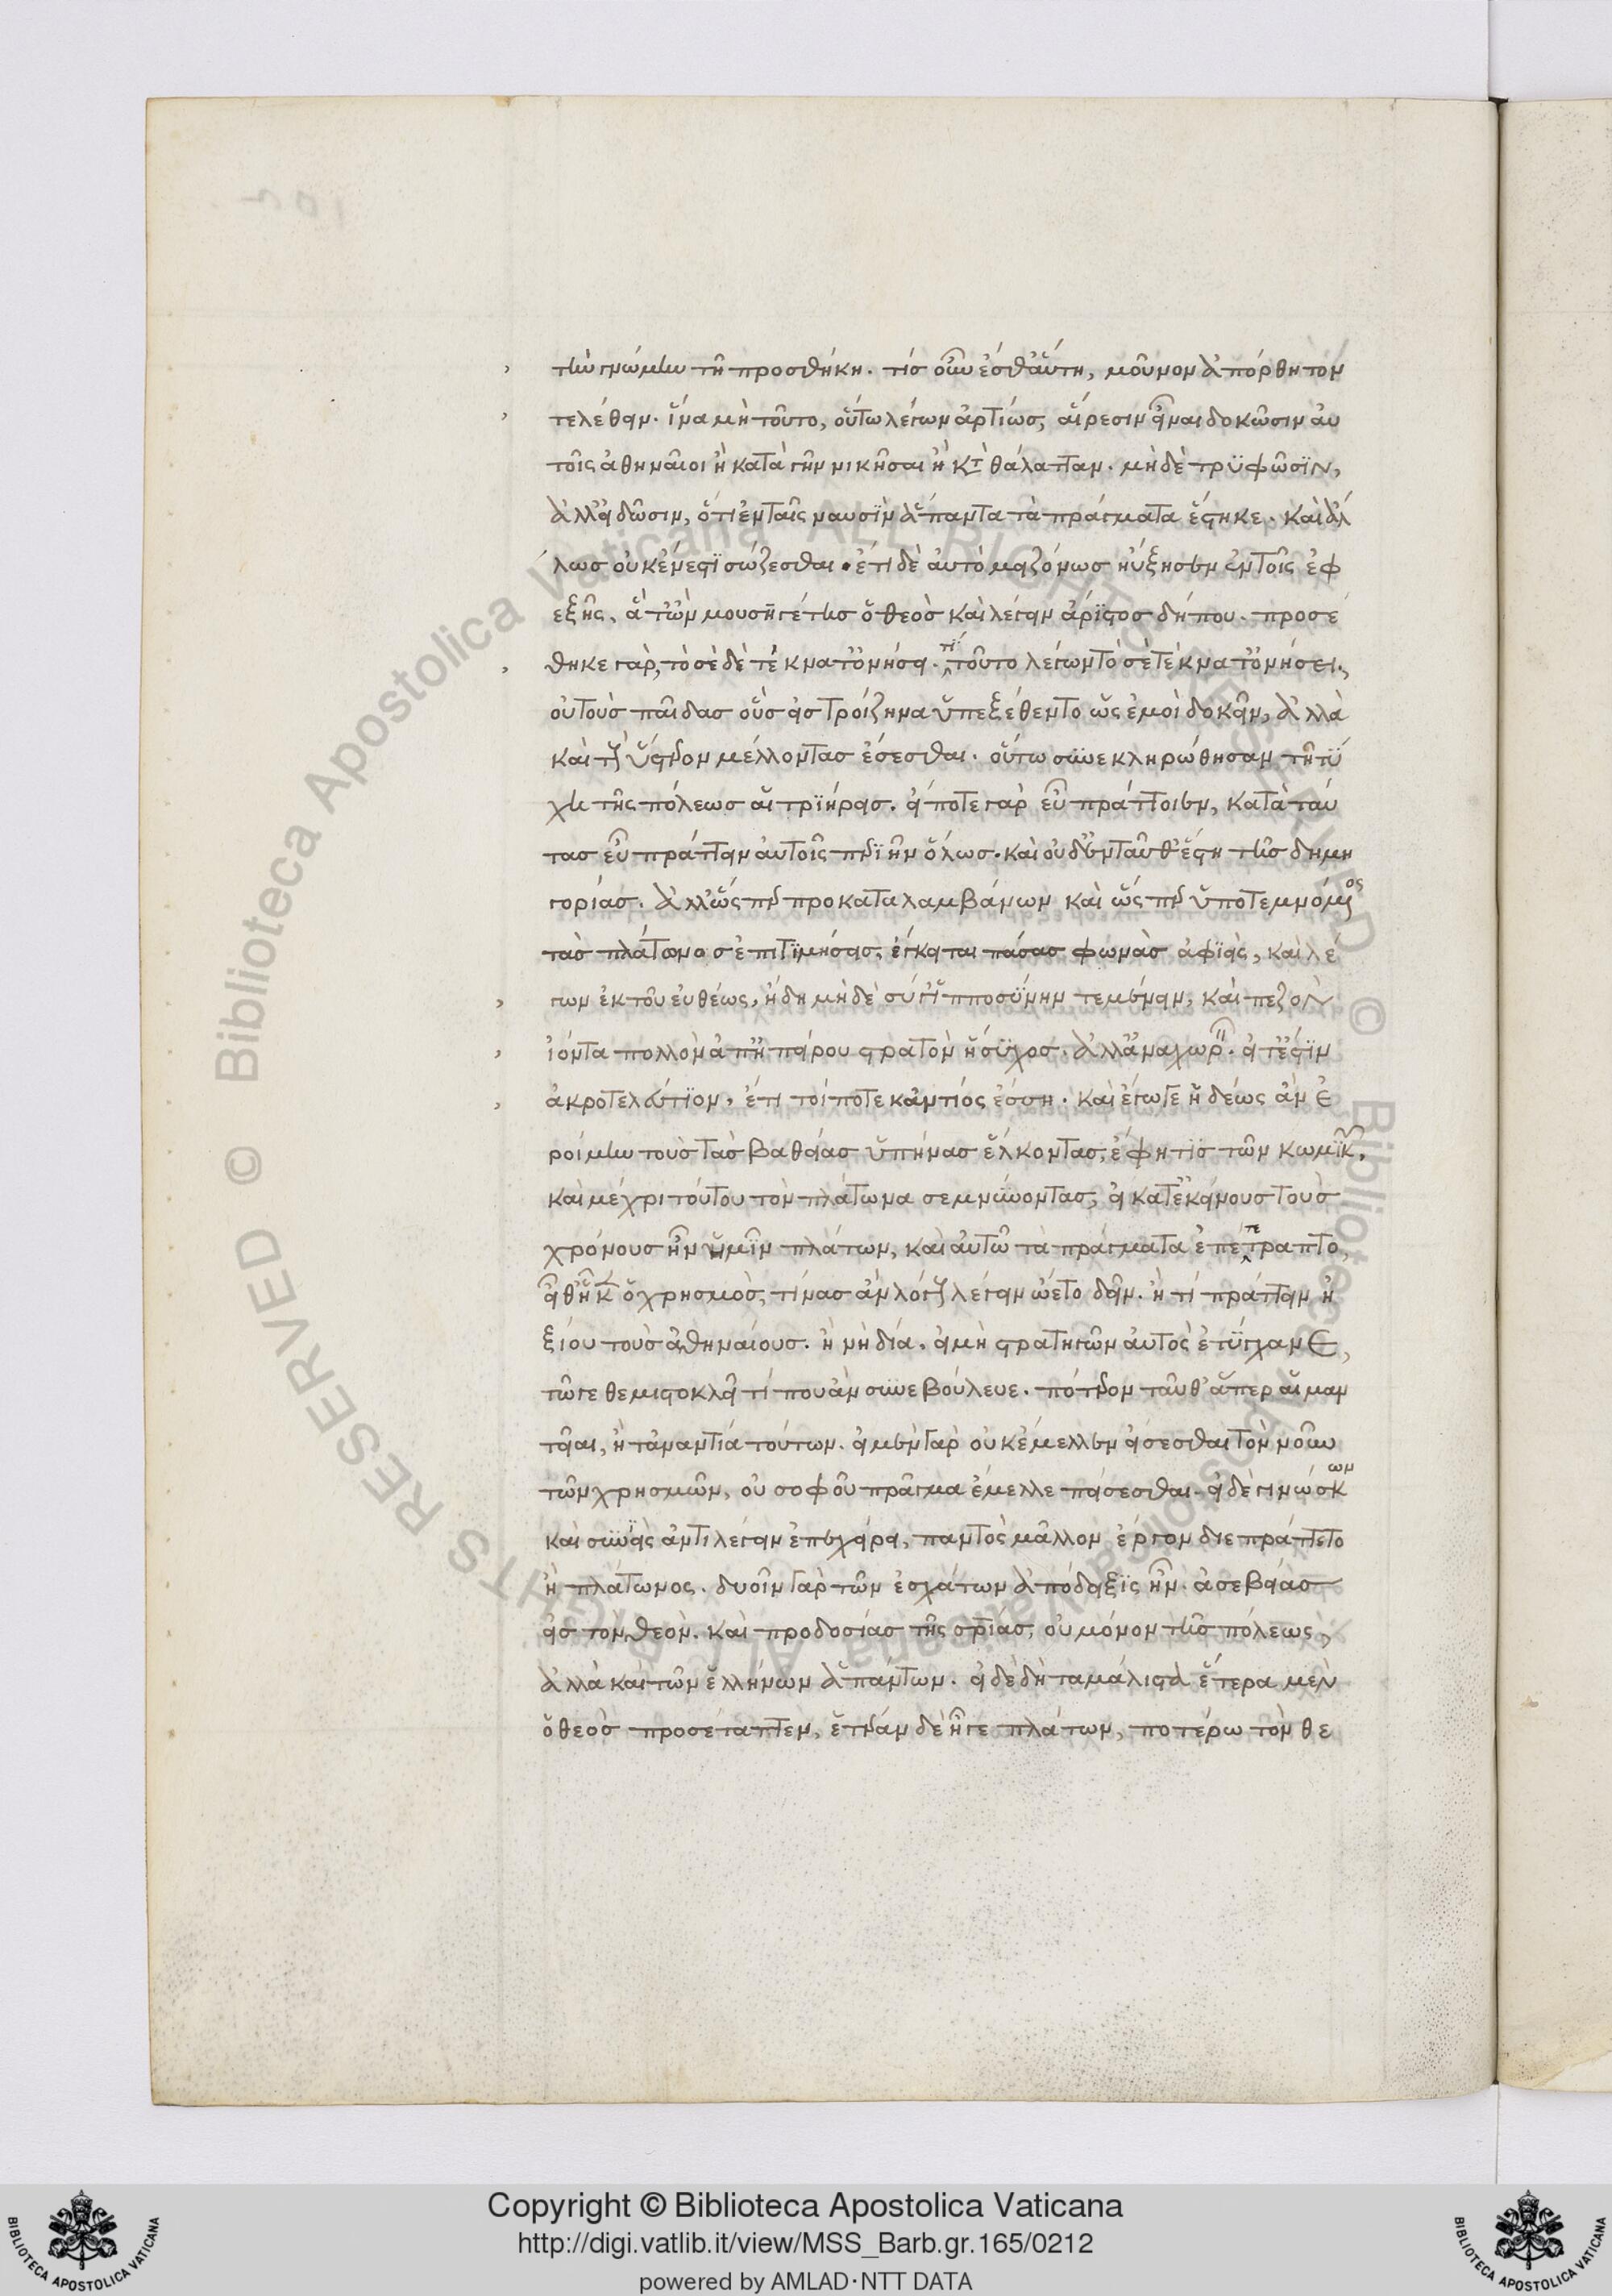 τὴν γνώμην τῆ προσθήκη. τίσ οὖν ἐσθ᾽ αὕτη, μοῦνον ἀπόρθητον
τελέθειν. ἵνα μὴ τοῦτο, οὕτω λέγων ἀρτίωσ, αἵρεσιν εἶναι δοκῶσιν αὐ
τοῖς ἀθηναῖοι ἢ κατὰ γῆν νικῆσαι ἢ κτ θάλατταν. μὴ δὲ τρϋφῶσϊν,
ἀλλ᾽ εἰδῶσιν, ὅτι ἐν ταῖς ναυσϊν ἅπαντα τὰ πράγματα ἕστηκε. καὶ ἄλ
λωσ οὐκ ἔνεστϊ σώζεσθαι. ἔτι δὲ αὐτὸ μειζόνωσ ηὔξησεν ἐν τοῖς ἐφ
εξῆς, ἅτ᾽ ὢν μουσηγέτησ ὁ θεὸσ καὶ λέγειν ἄρϊστοσ δήπου. προσέ
θηκε γὰρ, τὸ σὲ δὲ τέκνα τ᾽ ὀνήσει. τί τοῦτο λέγων τὸ σὲ τέκνα τ᾽ ὀνήσει.
οὐ τοὺσ παῖδασ οὓσ εἰσ τροίζηνα ὑπεξέθεντο ὥς ἐμοὶ δοκεῖν, ἀλλὰ
καὶ τοὺς ὕστερον μέλλοντασ ἔσεσθαι. οὕτω συνεκληρώθησαν τῆ τύ
χη τῆς πόλεωσ αἱ τρϊήρεισ. εἴ ποτε γὰρ εὖ πράττοιεν, κατὰ ταύ
τασ εὖ πράττειν αὐτοῖς περϊῆν ὅλωσ. καὶ οὐδ᾽ ἐνταῦθ᾽ ἔστη τῆσ δημη
γορίασ. ἀλλ᾽ ὥσπερ προκαταλαμβάνων καὶ ὥσπερ ὑποτεμνόμενος
τὰσ πλάτωνοσ ἐπιτϊμήσεισ, ἔγκειται πάσασ φωνὰσ ἀφϊεὶς, καὶ λέ
γων ἐκ τοῦ εὐθέως, ἤδη μὴ δὲ σύ γ᾽ ἱπποσύνην τε μένειν, καὶ πεζὸν
ἰόντα πολλὸν ἀπ᾽ ἠπείρου στρατὸν ἥσϋχοσ. ἀλλ᾽ ἀναχωρεῖν. εἶτ᾽ ἐστϊν
ἀκροτελεύτϊον, ἔτι τοί ποτε κἀντίός ἔσση. καὶ ἔγωγε ἡδέως ἂν ἐ
ροίμην τοὺσ τὰσ βαθείασ ὑπήνασ ἕλκοντασ, ἔφη τϊσ τῶν κωμικῶν,
καὶ μέχρι τούτου τὸν πλάτωνα σεμνύνοντασ, εἰ κατ᾽ ἐκείνουσ τοὺσ
χρόνουσ ἦν ἡμῖν πλάτων, καὶ αὐτῶ τὰ πράγματα ἐπετέτραπτο,
εἶθ᾽ ἧκεν ὁ χρησμὸσ, τίνασ ἂν λόγους λέγειν ὤετο δεῖν. ἢ τί πράττειν ἠ
ξίου τοὺσ ἀθηναίουσ. ἢ νὴ δία, εἰ μὴ στρατηγῶν αὐτὸς ἐτύγχανε,
τῶ γε θεμιστοκλεῖ τί που ἂν συνεβούλευε. πότερον ταῦθ᾽ ἅπερ αἱ μαν
τεῖαι, ἢ τἀναντία τούτων. εἰ μὲν γὰρ οὐκ ἔμελλεν εἴσεσθαι τὸν νοῦν
τῶν χρησμῶν, οὐ σοφοῦ πρᾶγμα ἔμελλε πείσεσθαι. εἰ δὲ γινώσκων
καὶ συνεὶς ἀντιλέγειν ἐπεχείρει, παντὸς μᾶλλον ἔργον διεπράττετο
ἢ πλάτωνος. δυοῖν γὰρ τῶν ἐσχάτων ἀπόδειξϊς ἦν. ἀσεβείασ
εἰσ τὸν θεὸν. καὶ προδοσίασ τῆς σρίασ, οὐ μόνον τῆσ πόλεως,
ἀλλὰ καὶ τῶν ἑλλήνων ἁπάντων. εἰ δὲ δὴ ταμάλιστα ἕτερα μὲν
ὁ θεὸσ προσέταττεν, ἑτέραν δὲ ἦγε πλάτων, ποτέρω τὸν θε
Copyright © Biblioteca Apostolica Vaticana
http://digi.vatlib.it/view/MSS_Barb.gr.165/0212
powered by AMLAD·NTT DATA